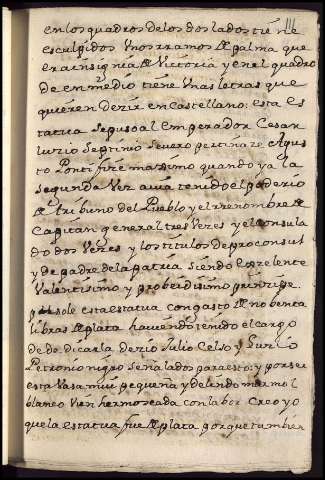 en los quadros de los dos lados tiene
esculpidos Unos rramos de palma que
era insignia de Victoria y en el quadro
de en medio tiene Unas letras que
quieren dezir en castellano: esta es
tatua se puso al emperador Cesar
luzio Septimio Severo pertinaz e Agus
to Pontifize maximo quando ya la
segunda Vez avia tenido el poderio
de tribuno del Pueblo y el rrenombre de
Capitan general tres Vezes y el consula
do dos Vezes y los titulos de proconsul
y de padre de la patria siendo exzelente
Valentisimo y probeidisimo prinzipe
pusole esta estatua con gasto de nobenta
libras de plata haviendo tenido el cargo
de dedicarla dezio Julio Celso y
Petronio nigro señalados para esto: y por ser
esta Vasa mui pequeña y de lindo marmol
blanco Vien hermoseada con labor Creo yo
que la estatua fue de plata porque tambien